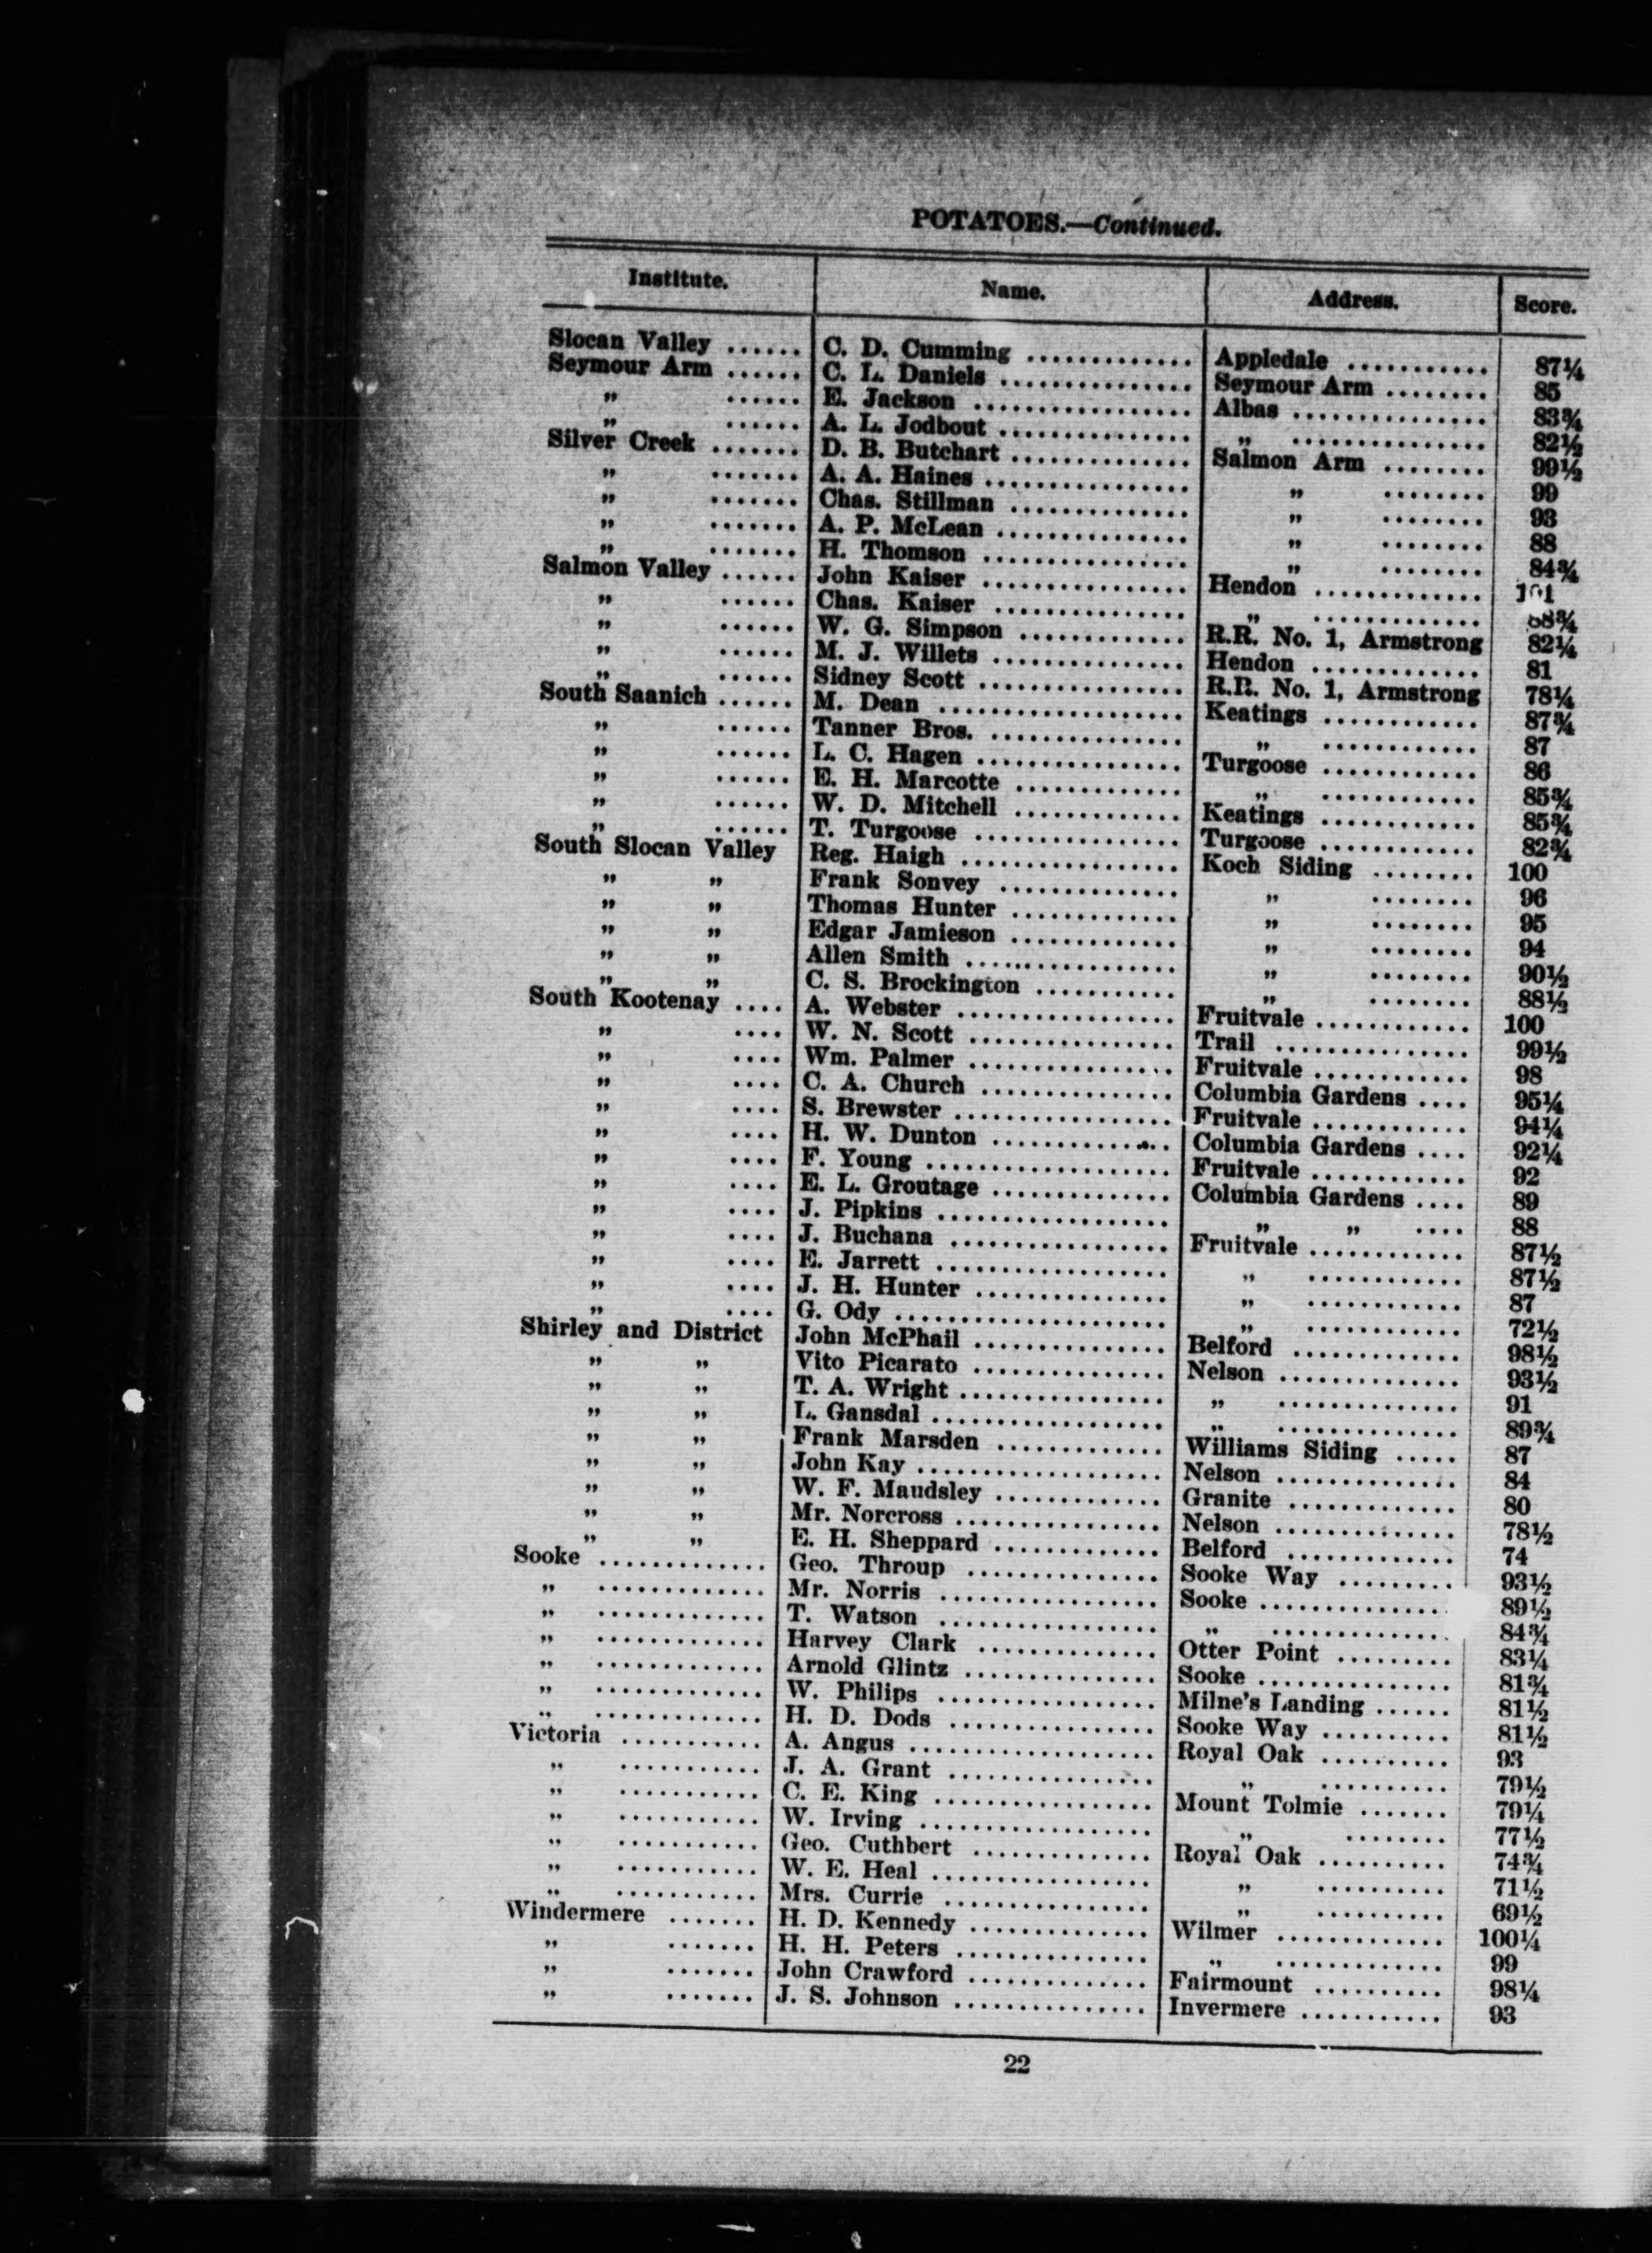 POTATOES.—Continued.
Institute. Name. Address. Score.
Slocan Valley ...... C. D. Cumming ............. Appledale ........... 87¼
Seymour Arm ...... C. L. Daniels ............... Seymour Arm ........ 85
" ...... E. Jackson ................. Albas ............... 83¾
" ...... A. L. Jodbout ............... " ............... 82½
Silver Creek ....... D. B. Butchart .............. Salmon Arm ........ 99½
" ....... A. A. Haines ................ " ........ 99
" ....... Chas. Stillman .............. " ........ 93
" ....... A. P. McLean ............... " ........ 88
" ....... H. Thomson ................ " ........ 84¾
Salmon Valley ...... John Kaiser ................ Hendon ............. 101
" ...... Chas. Kaiser ............... " ............. 88¾
" ...... W. G. Simpson ............. R.R. No. 1, Armstrong 82¼
" ...... M. J. Willets ............... Hendon ............. 81
" ...... Sidney Scott ................ R.R. No. 1, Armstrong 78¼
South Saanich ...... M. Dean ................... Keatings ............ 87¾
" ...... Tanner Bros. ............... " ............ 87
" ...... L. C. Hagen ................ Turgoose ............ 86
" ...... E. H. Marcotte ............. " ............ 85¾
" ...... W. D. Mitchell ............. Keatings ............ 85¾
" ...... T. Turgoose ................ Turgoose ............ 82¾
South Slocan Valley Reg. Haigh ................. Koch Siding ........ 100
" " Frank Sonvey .............. " ........ 96
" " Thomas Hunter ............. " ........ 95
" " Edgar Jamieson ............. " ........ 94
" " Allen Smith ................ " ........ 90½
" " C. S. Brockington ........... " ........ 88½
South Kootenay .... A. Webster ................. Fruitvale ............ 100
" .... W. N. Scott ................ Trail ............... 99½
" .... Wm. Palmer ................ Fruitvale ............ 98
" .... C. A. Church ............... Columbia Gardens .... 95¼
" .... S. Brewster ................. Fruitvale ............ 94¼
" .... H. W. Dunton .............. Columbia Gardens .... 92¼
" .... F. Young ................... Fruitvale ............ 92
" .... E. L. Groutage .............. Columbia Gardens .... 89
" .... J. Pipkins .................. " " .... 88
" .... J. Buchana ................. Fruitvale ............ 87½
" .... E. Jarrett .................. " ............ 87½
" .... J. H. Hunter ............... " ............ 87
" .... G. Ody ..................... " ............ 72½
Shirley and District John McPhail ............... Belford ............. 98½
" " Vito Picarato ............... Nelson .............. 93½
" " T. A. Wright ................ " .............. 91
" " L. Gansdal .................. " .............. 89¾
" " Frank Marsden ............. Williams Siding ..... 87
" " John Kay ................... Nelson .............. 84
" " W. F. Maudsley ............. Granite ............. 80
" " Mr. Norcross ................ Nelson .............. 78½
" " E. H. Sheppard ............. Belford ............. 74
Sooke ............. Geo. Throup ............... Sooke Way ......... 93½
" ............. Mr. Norris ................. Sooke ............... 89½
" ............. T. Watson ................. " .............. 84¾
" ............. Harvey Clark .............. Otter Point ......... 83¼
" ............. Arnold Glintz ............... Sooke ............... 81¾
" ............. W. Philips ................. Milne's Landing ...... 81½
" ............. H. D. Dods ................ Sooke Way .......... 81½
Victoria ........... A. Angus ................... Royal Oak .......... 93
" ........... J. A. Grant ................ " .......... 79½
" ........... C. E. King ................. Mount Tolmie ....... 79¼
" ........... W. Irving .................. " ........ 77½
" ........... Geo. Cuthbert .............. Royal Oak .......... 74¾
" ........... W. E. Heal ................. " .......... 71½
" ........... Mrs. Currie ................ " .......... 69½
Windermere ....... H. D. Kennedy .............. Wilmer ............. 100¼
" ....... H. H. Peters ............... " ............. 99
" ....... John Crawford .............. Fairmount .......... 98¼
" ....... J. S. Johnson ............... Invermere ........... 93
22